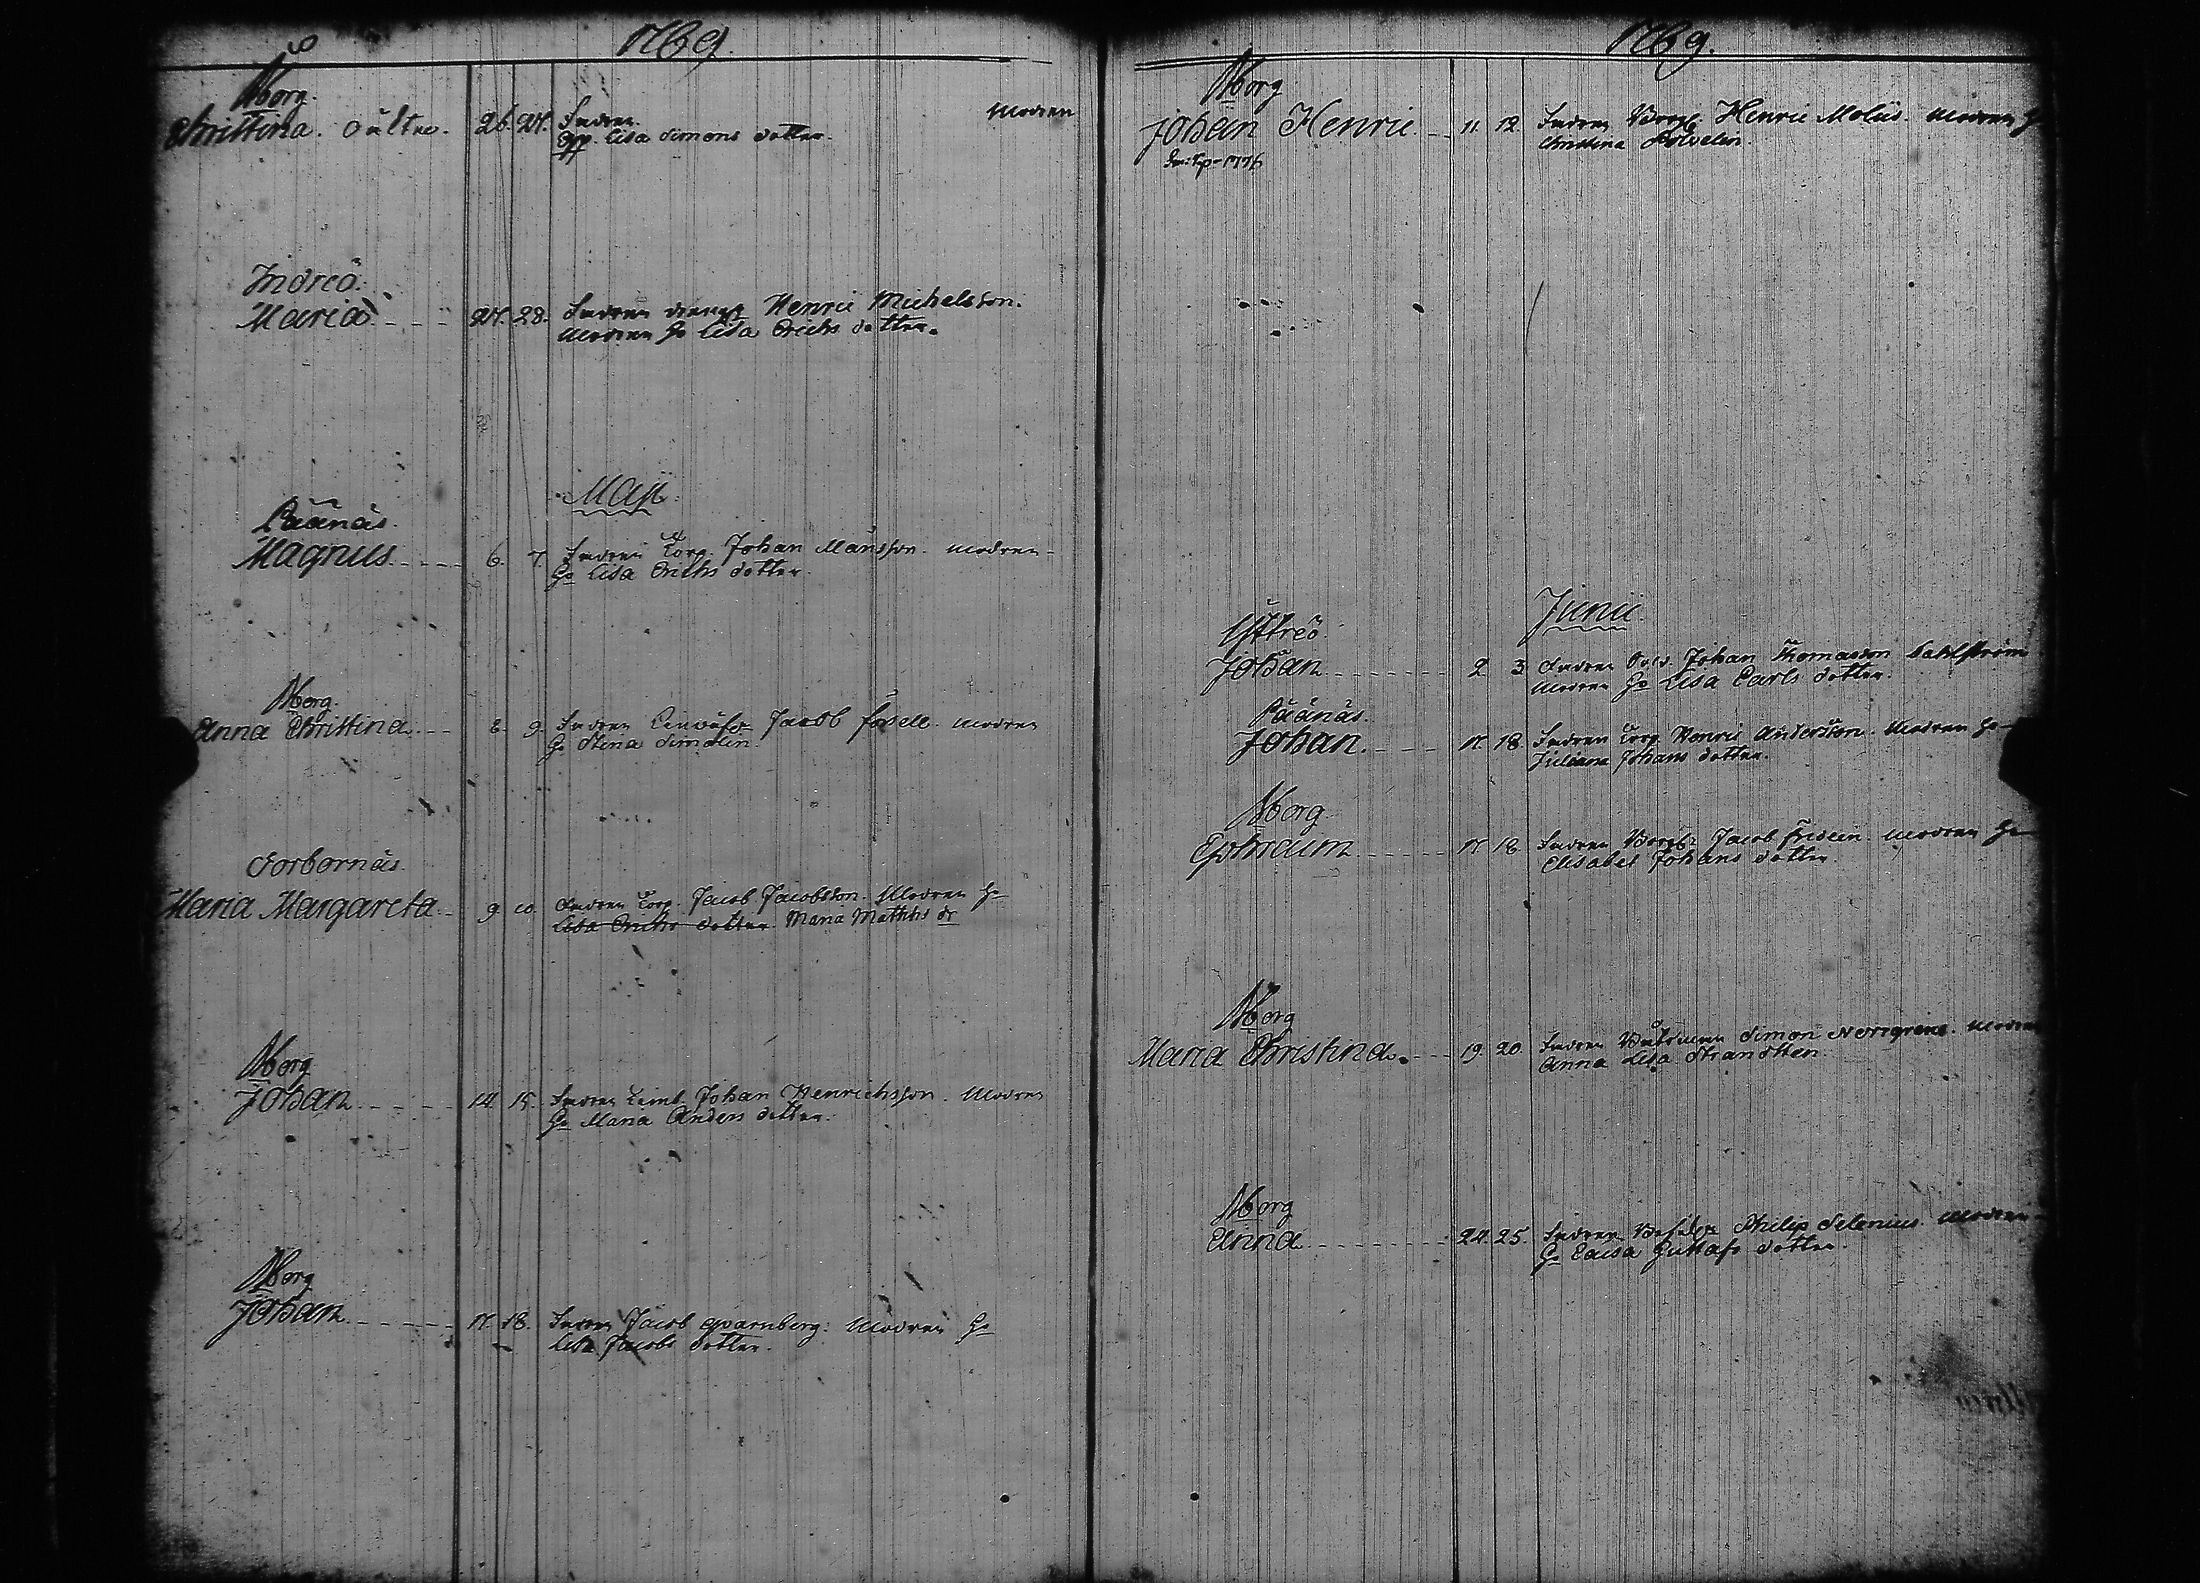 1769.
Nborg.
Christina. oächta. 26. 27. Fadren. Modren
Lisa Simons dotter.
Indreö.
Maria 27. 28. Fadren Henric Michelsson.
Modren Ho Lisa Erichs dotter.
Maji.
Påånäs.
Magnus 6. 7. Fadren Torp. Johan Månsson. Modren
Ho Lisa Erichs dotter.
Nborg.
Anna Christina 8. 9. Fadren Jacob Modren
Ho Stina Simolin.
Sorbornäs.
Maria Margareta 9. 10. Fadren Torp. Jacob Jacobsson. Modren Ho
Lisa Erichs dotter Maria Matthis dr
Nborg
Johan 14. 15. Fadren Timb. Johan Henrichsson. Modren
Ho Maria Anders dotter.
Nborg
Johan 17. 18. Fadren Jacob Qvarnberg. Modren Ho
Lisa Jacobs dotter.
1769.
Nborg
Johan Henric 11. 12. Fadren Borg. Henric Molüs. Modren
Christina
1776
Junii.
Yttreö.
Johan 2 3 Fadren Johan Thomasson Dahlström
Modren Ho Lisa Carls dotter.
Påånäs.
Johan 17. 18. Fadren Torp. Henric Andersson. Modren Ho
Juliana Johans dotter.
Nborg
Ephraim 17. 18. Fadren Jacob Modren Ho
Elisabet Johans dotter
Nborg
Maria Christina 19. 20. Fadren Simon Norrgrens. Modren
Anna Lisa Strandsten.
Nborg
Anna 24. 25. Fadren Philip Selenius. Modren
Ho Caisa Gustafs dotter.